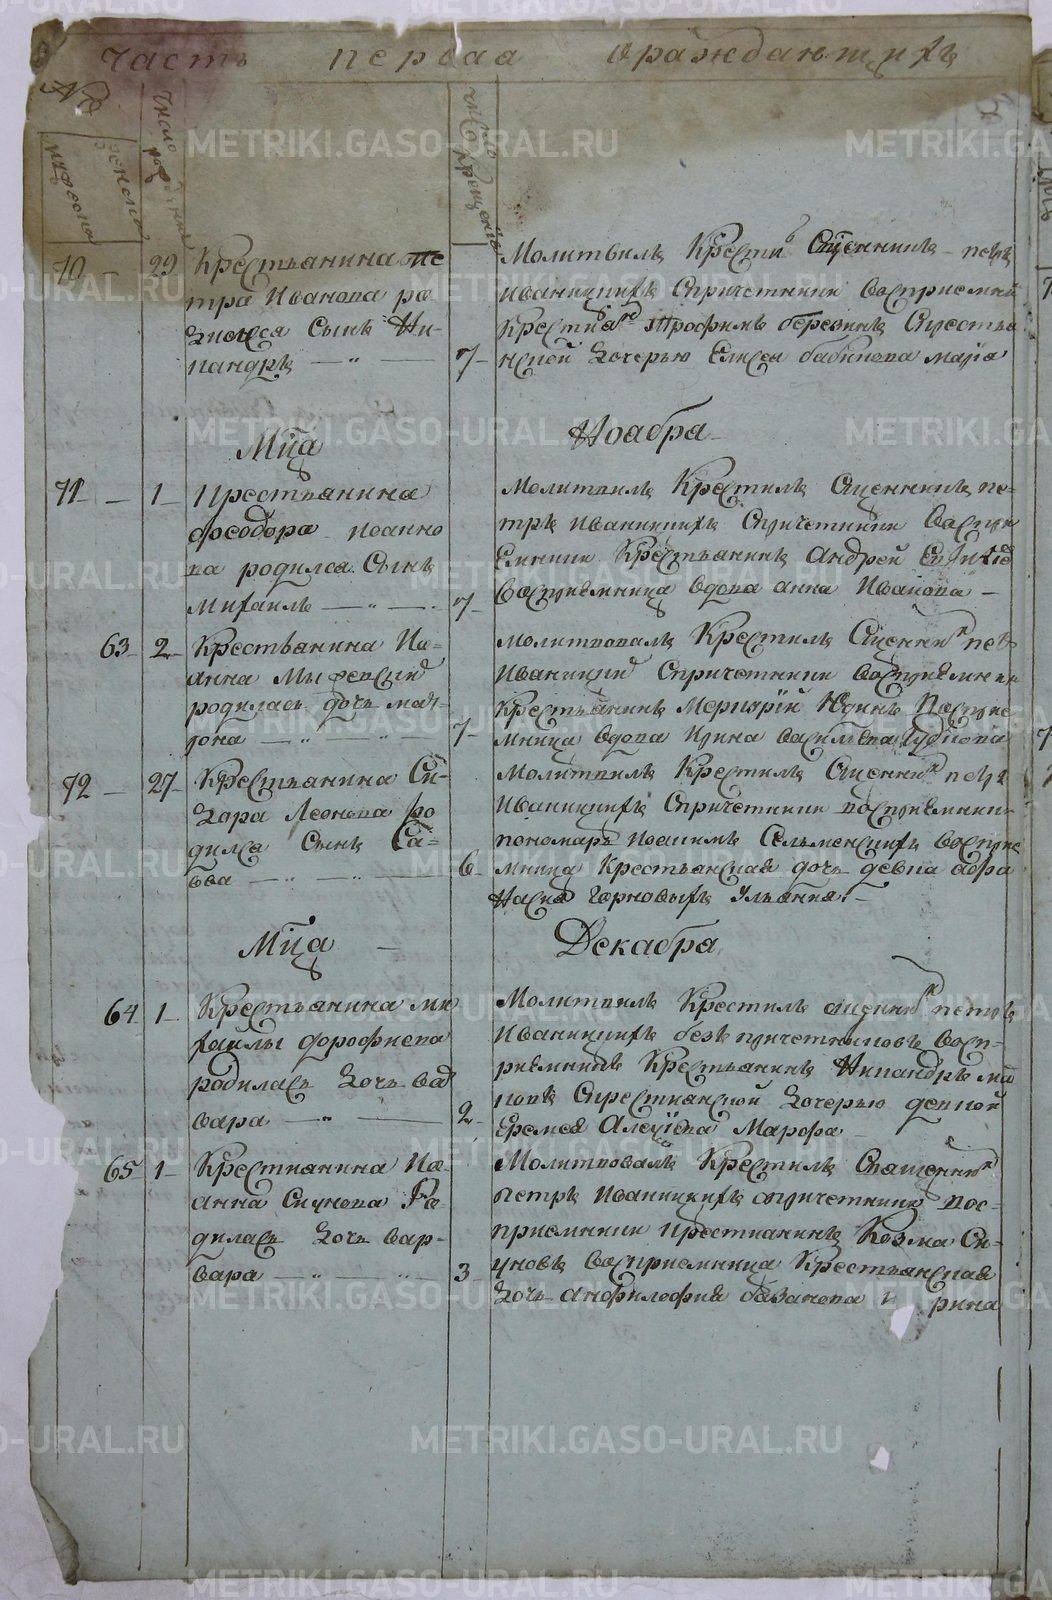 часть первая ораждающихъ
№
мужеска
женска
число рождения
число крещения
70 — 29 Крестьянина Пе
тра Иванова ро
дился Сынъ Ни-
кандръ — 7
Молитвилъ Крести Сщенникъ петръ
Иваницкихъ Спричетники восприемни
Крестья Трофимъ березинъ Скрестья
нской дочерью Елисея бабикова марья
Мца Ноабра
71 — 1 Крестьянина
феодора иоанно
ва родился Сынъ
Михаилъ — 7
Молитвилъ Крестилъ Сщенникъ пе-
тръ иваницкихъ Спричетники Воспри
Емники Крестьянинъ Андрей
Восприемница вдова анна Иванова —
63 2 Крестьянина Ио-
анна
родилась дочь мат-
рона — 7
молитвовалъ Крестилъ Сщенни петръ
Иваницкий Спричетники восприемники
Крестьянинъ Меркурий Юдинъ Воспрее
мница вдова Ирина васильева Губкова
72 — 27 Крестьянина Си-
дора Леонова ро
дился Сынъ Са-
вва — 6
Молитвилъ Крестилъ Сщенни петръ
Иваницкихъ Спричетники восприемники
пономарь иоакимъ Сельменскихъ воспрее
мница Крестьянская дочь девка афа
насья Черновыхъ Ульяния —
Мца — Декабра
64 1 Крестьянина ми
хаилы дорофиева
радилась дочь вар
вара — 2
Молитвилъ Крестилъ сщенни петръ
Иваницкихъ безъ причетниковъ восп-
риемники Крестьянинъ Никандръ
повъ Скрестианской дочерью девкой
Еремея Алексиева Марфа
65 1 Крестианина Ио-
анна Сичнова Ро-
дилась дочь вар-
вара — 3
Молитвовалъ Крестилъ Священни
петръ иваницкихъ спричетники вос-
приемники крестианинъ Козма Си-
чновъ восприемница Крестьянская
дочь анфилофия базанова рина
METRIKI.GASO-URAL.RU